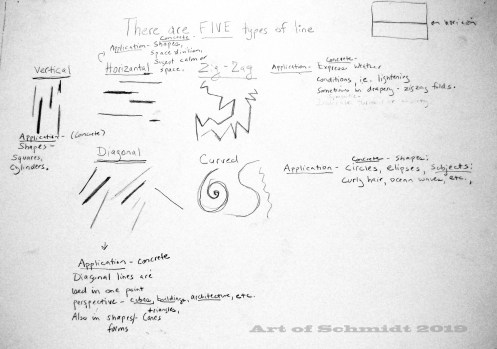 There are FIVE types of line
on horizon
Concrete-
Application- Shapes,
Space division,
Suject calm or
space.
Vertical
Horizontal
Zig-Zag
Concrete-
Application - Expresses
conditions, i.e. lightening
Sometimes in drapery - zigzag folds.
Application - (Concrete)
Shapes -
Squares,
Cylinders.
Diagonal
Curved
Concrete - shapes:
Application - circles, elipses, subjects:
curly hair, ocean waves, etc.,
Application - Concrete
Diagonal lines are
used in one point
perspective - cubes, buildings, architecture, etc.
triangles,
Also in shapes/- Cones
forms
Art of Schmidt 2019